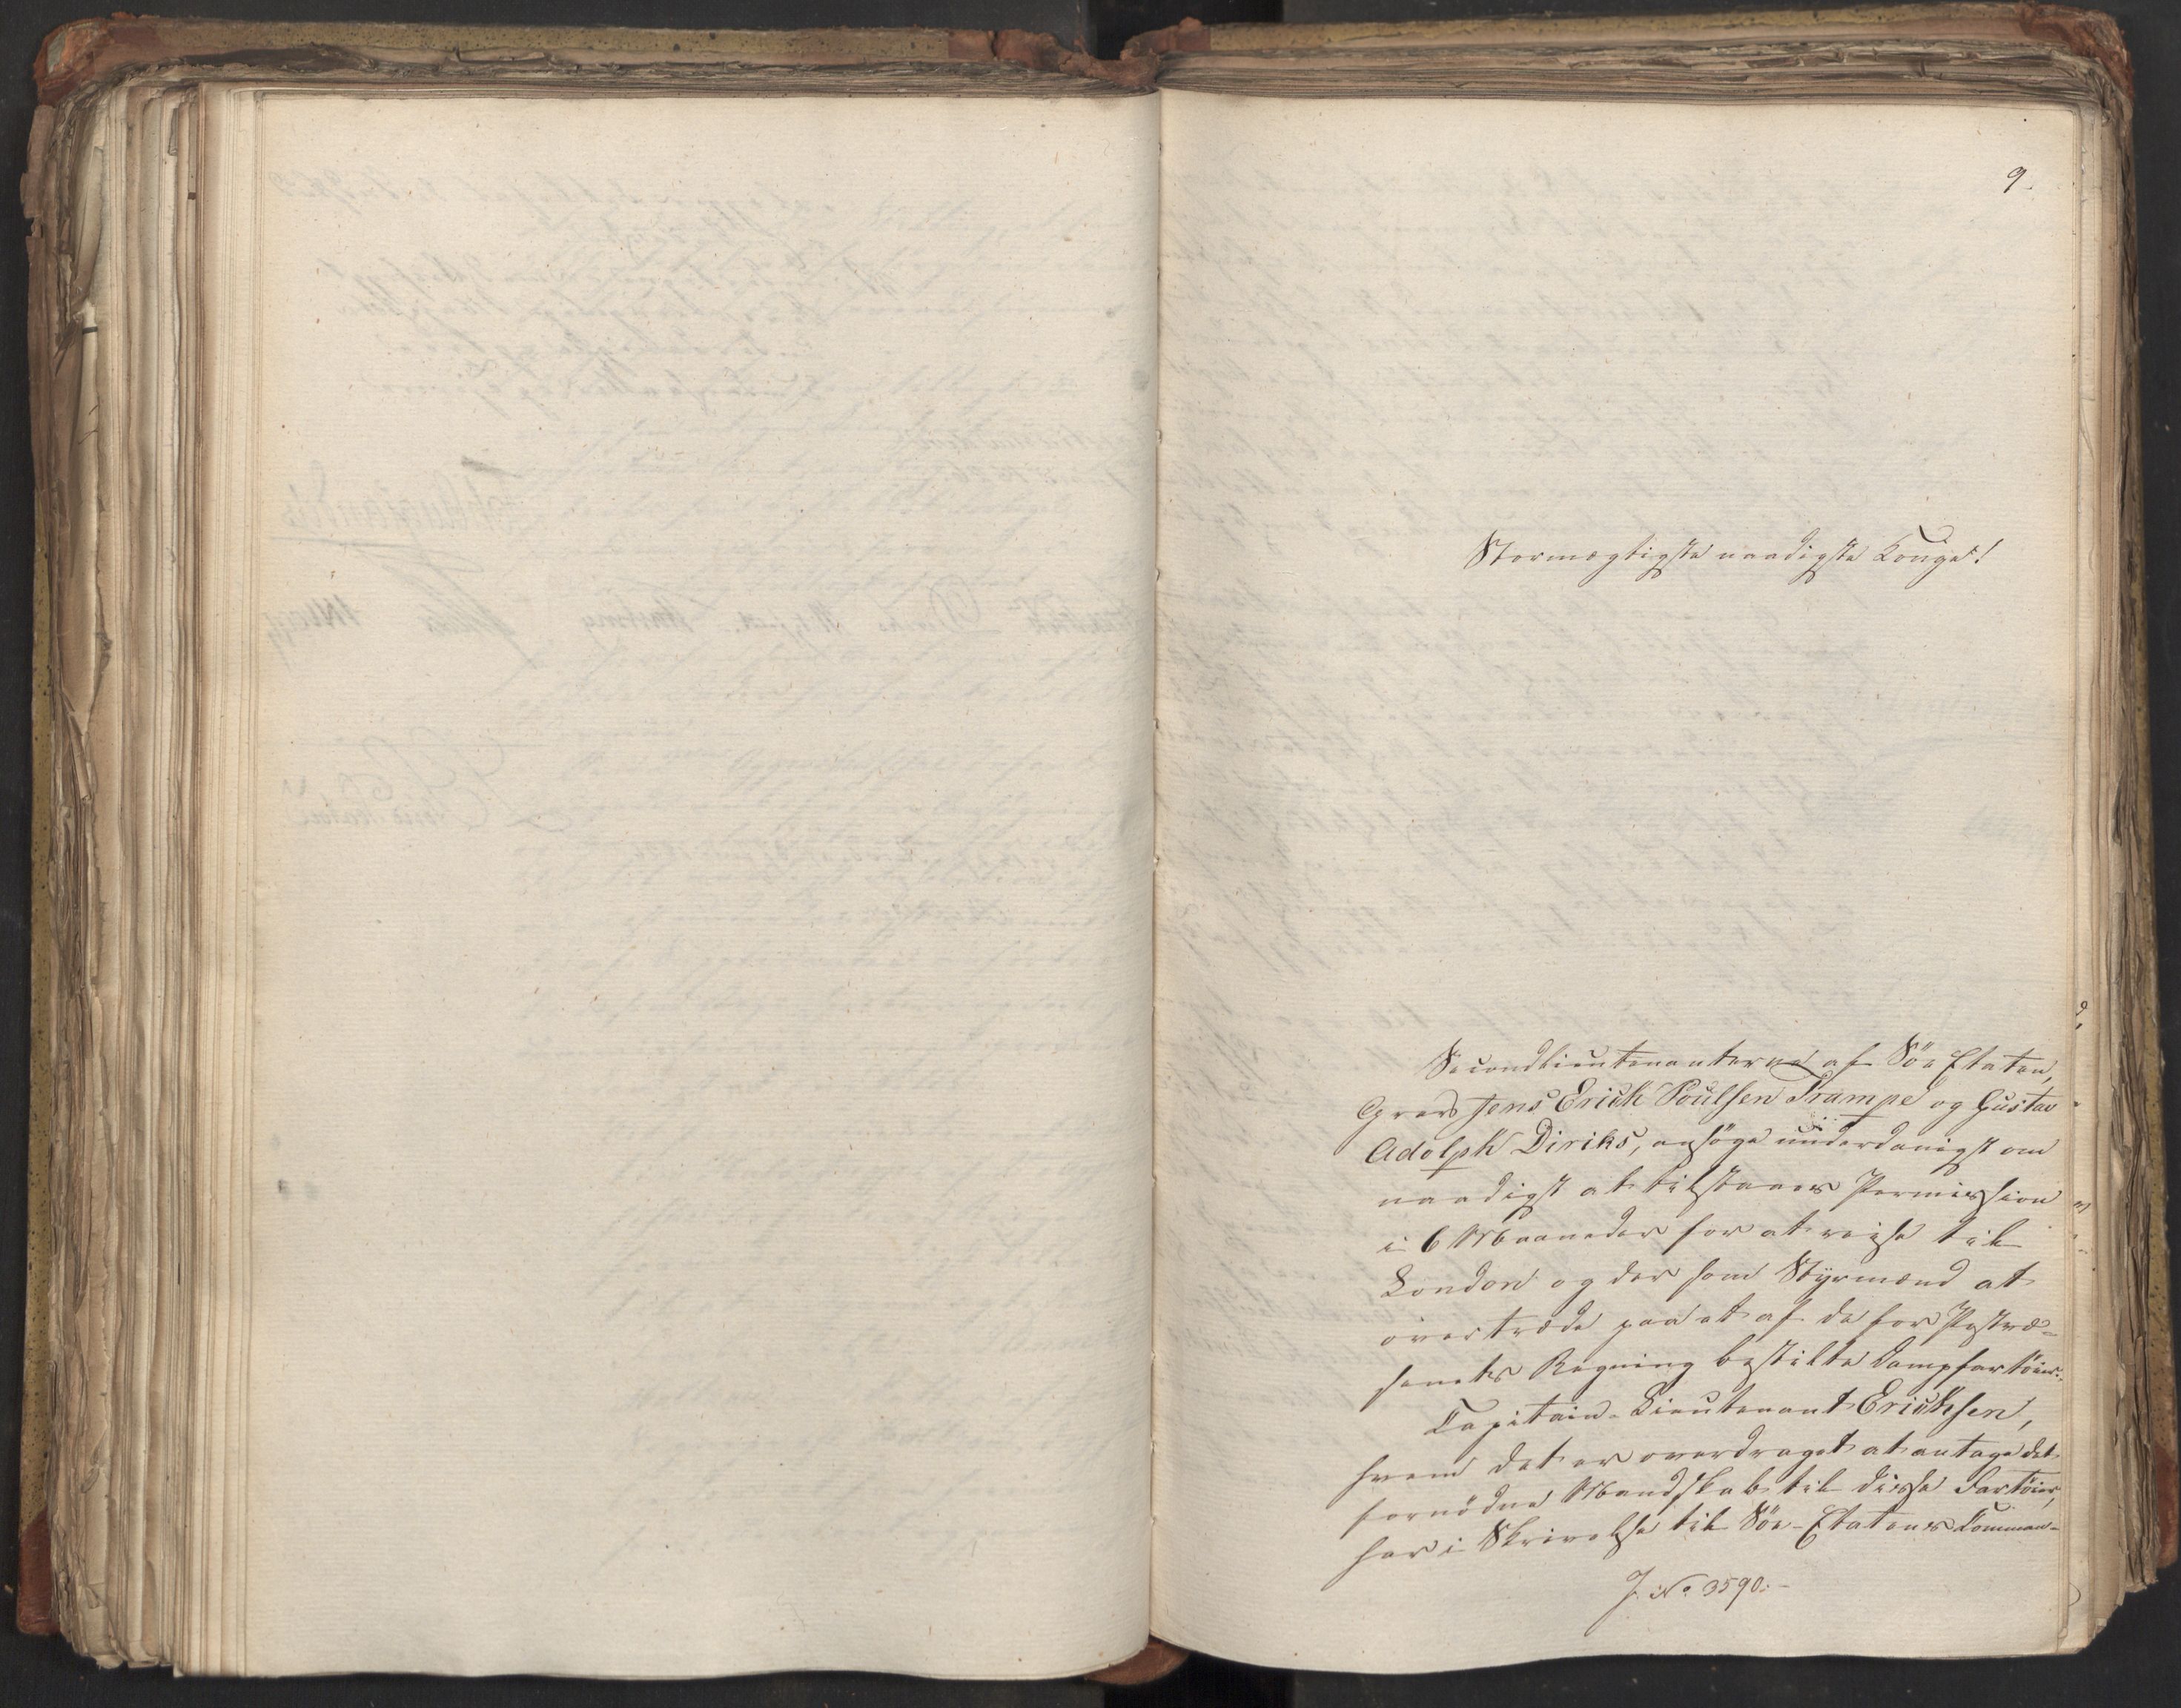 9.
Stormægtigste naadigste Konge!
Secondlieutenanterne af Söe Etaten,
Grev Jens Erich Poulsen Trampe og Gustav
Adolph Diriks, ansöge underdanigst om
naadigst at tilstaaes Permission
i 6 Maaneder for at reise til
London og der som Styrmænd at
overtræde paa et af de for Postvæ-
senets Regning bestilte Dampfartöier.
Capitain-Lieutenant Erichsen,
hvem det er overdraget at antage det
fornödne Mandskab til disse Fartöier,
har i Skrivelse til Söe-Etatens Comman-
J. No 3590.-